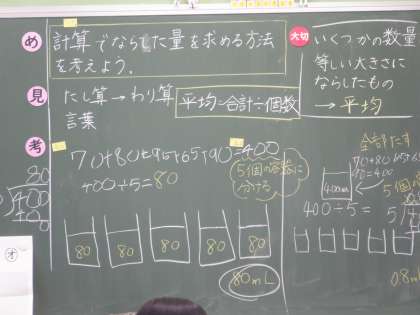 め
計算でならした量を求める方法
を考えよう。
見
たし算→わり算
言葉
平均=合計÷個数
考
70+80+95+65+90=400
400÷5=80
5個の容器に
分ける
80
400
40
0
80
80
80
80
80
80mL
オ
大切
いくつかの数量
等しい大きさに
ならしたもの
→平均
全部たす
400mL
400÷5=